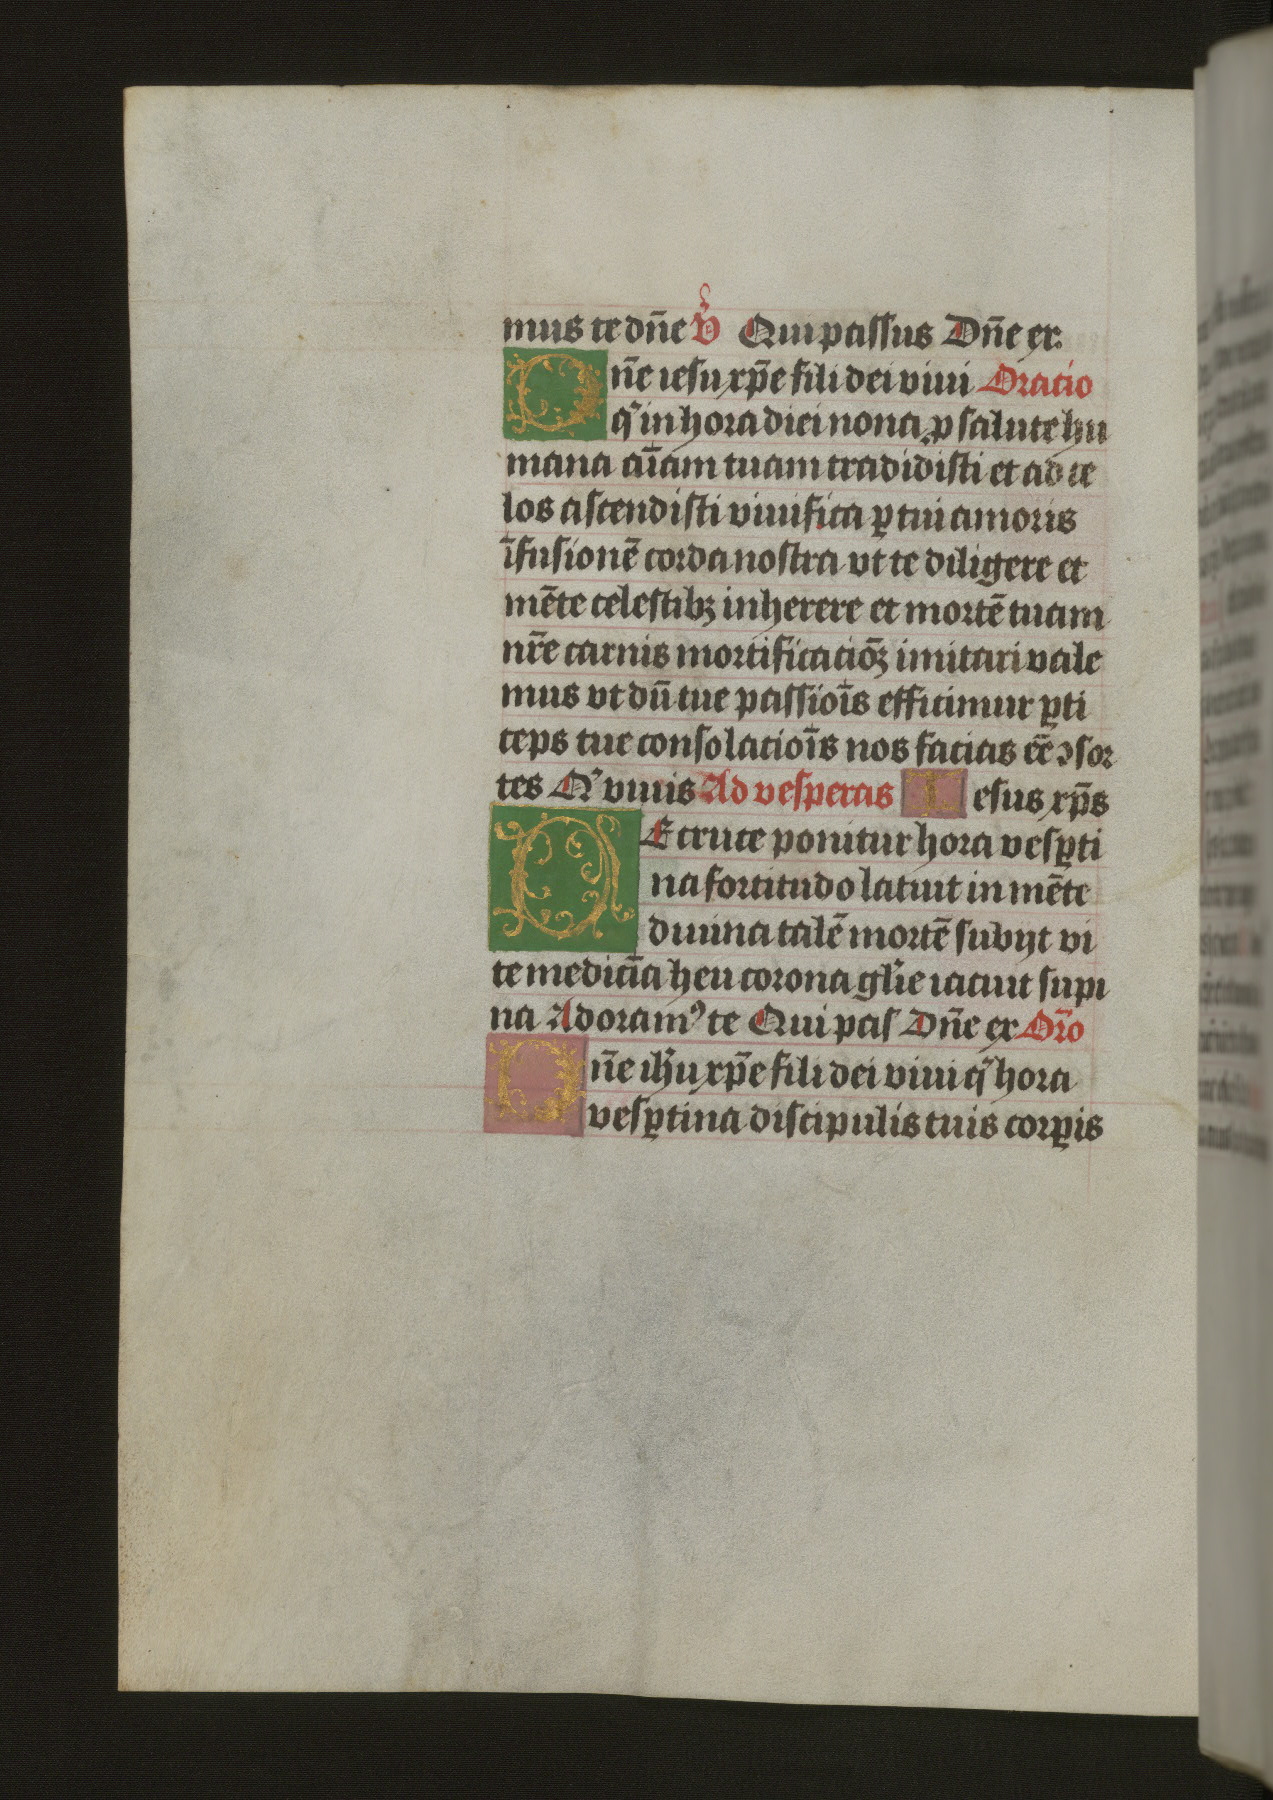 mus te dn̄e v̄ Qui passus Dn̄e ex.
Dn̄e iesu xp̄e fili dei viui Oratio
q̄ in hora diei nona ꝓ salute hu
mana aīam tuam tradidisti et ad ce
los ascendisti viuifica ꝑ tui amoris
īfusionē corda nostra vt te diligere et
mēte celestibꝫ inherere et mortē tuam
nr̄e carnis mortificatiōꝫ imitari vale
mus vt dū tue passioīs efficimur ꝑti
ceps tue consolatioīs nos facias eē ꝯsor
tes Qͥ viuis Ad vesperas Iesus xp̄s
DE cruce ponitur hora vesꝑti
na fortitudo latuit in mēte
diuina talē mortē subijt vi
te medicīa heu corona gl̄ie iacuit supi
na Adoramꝰ te Qui pas Dn̄e ex Or̄o
Dn̄e ih̄u xp̄e fili dei viui qͥ hora
vesꝑtina discipulis tuis corꝑis